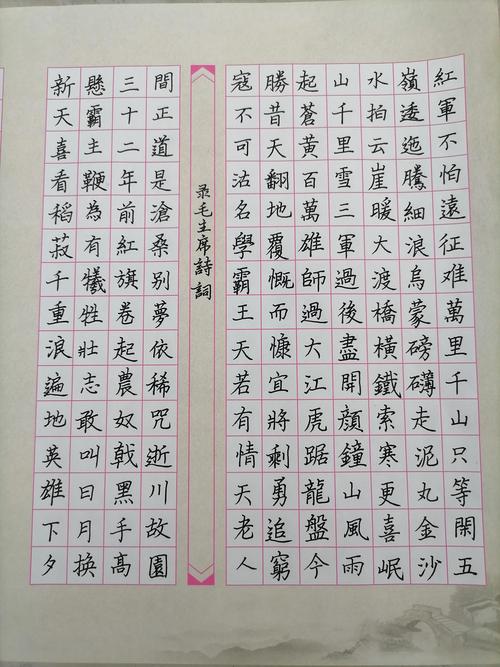 紅軍不怕遠征难萬里千山只等閑五
嶺逶迤騰細浪烏蒙磅礴走泥丸金沙
水拍云崖暖大渡橋橫鐵索寒更喜岷
山千里雪三軍過後盡開顔鐘山風雨
起蒼黃百萬雄師過大江虎踞龍盤今
勝昔天翻地覆慨而慷宜將剩勇追窮
寇不可沽名學霸王天若有情天老人
录毛主席詩詞
間正道是滄桑別夢依稀咒逝川故園
三十二年前紅旗卷起農奴戟黑手高
懸霸主鞭為有犧牲壯志敢叫日月換
新天喜看稻菽千重浪遍地英雄下夕